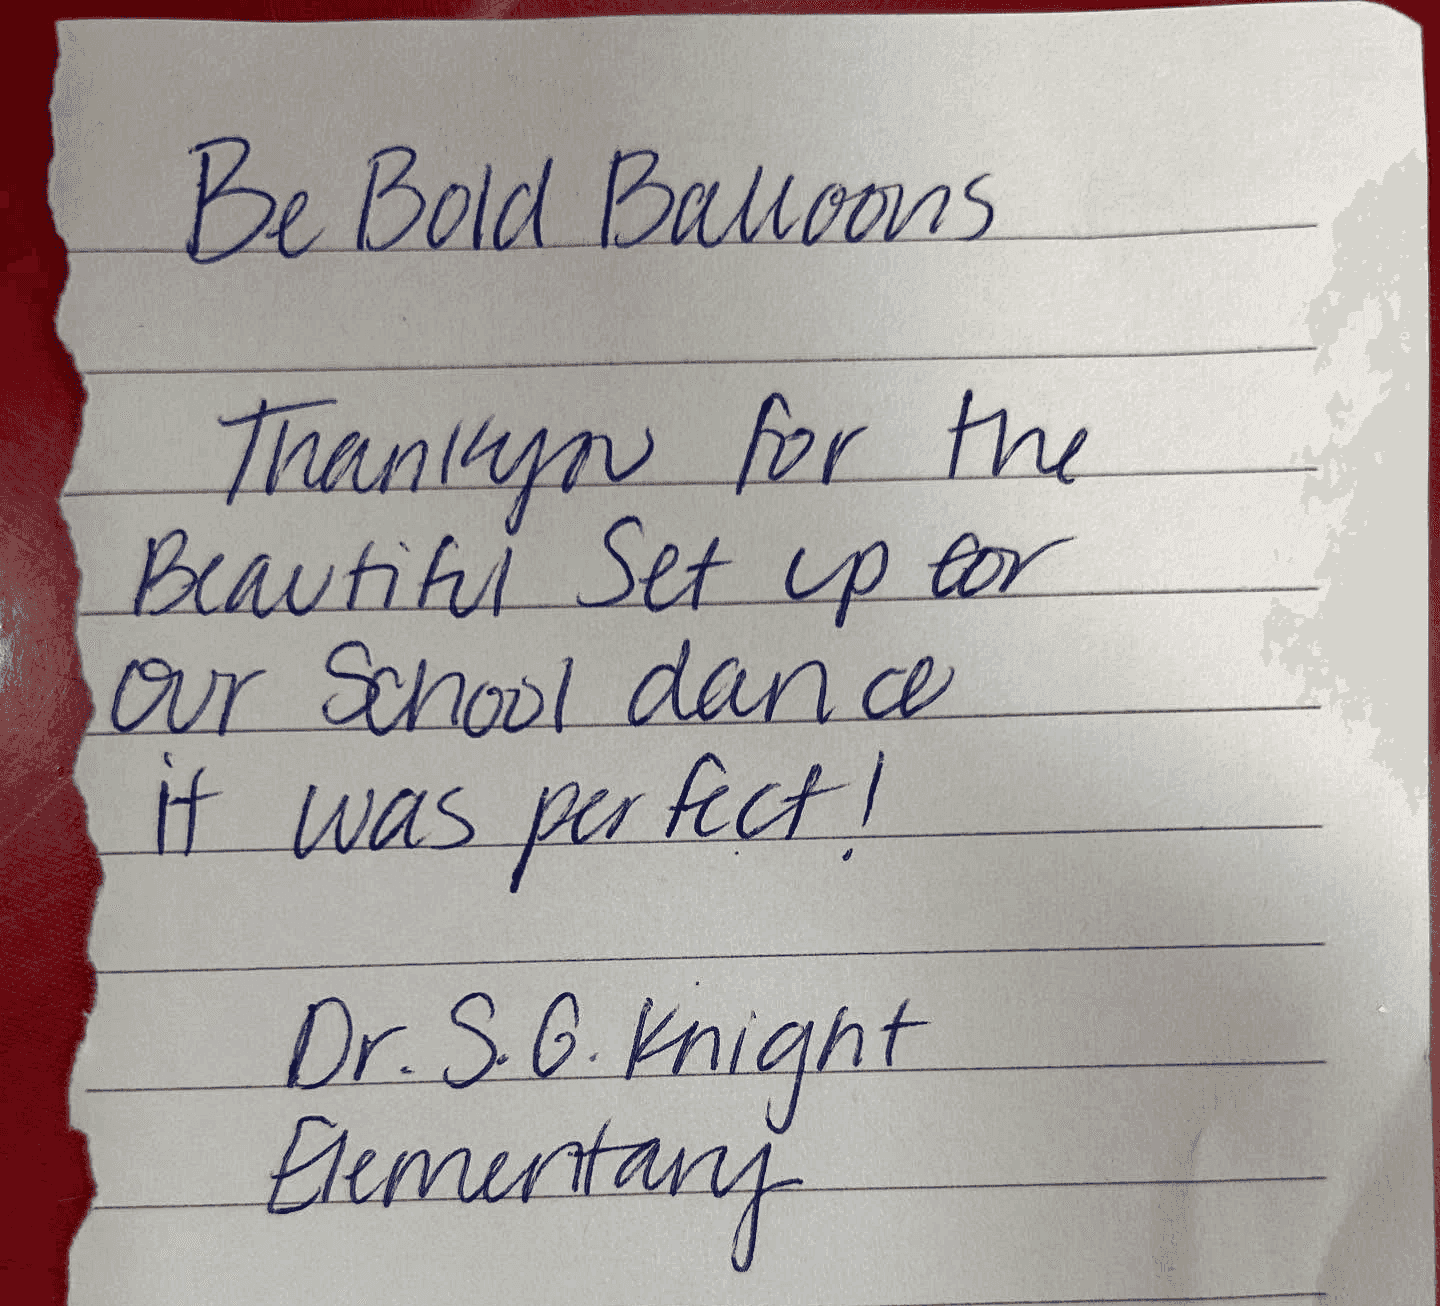 Be Bold Balloons
Thankyou for the
Beautiful Set up for
our School dance
it was perfect!
Dr. S. G. Knight
Elementary